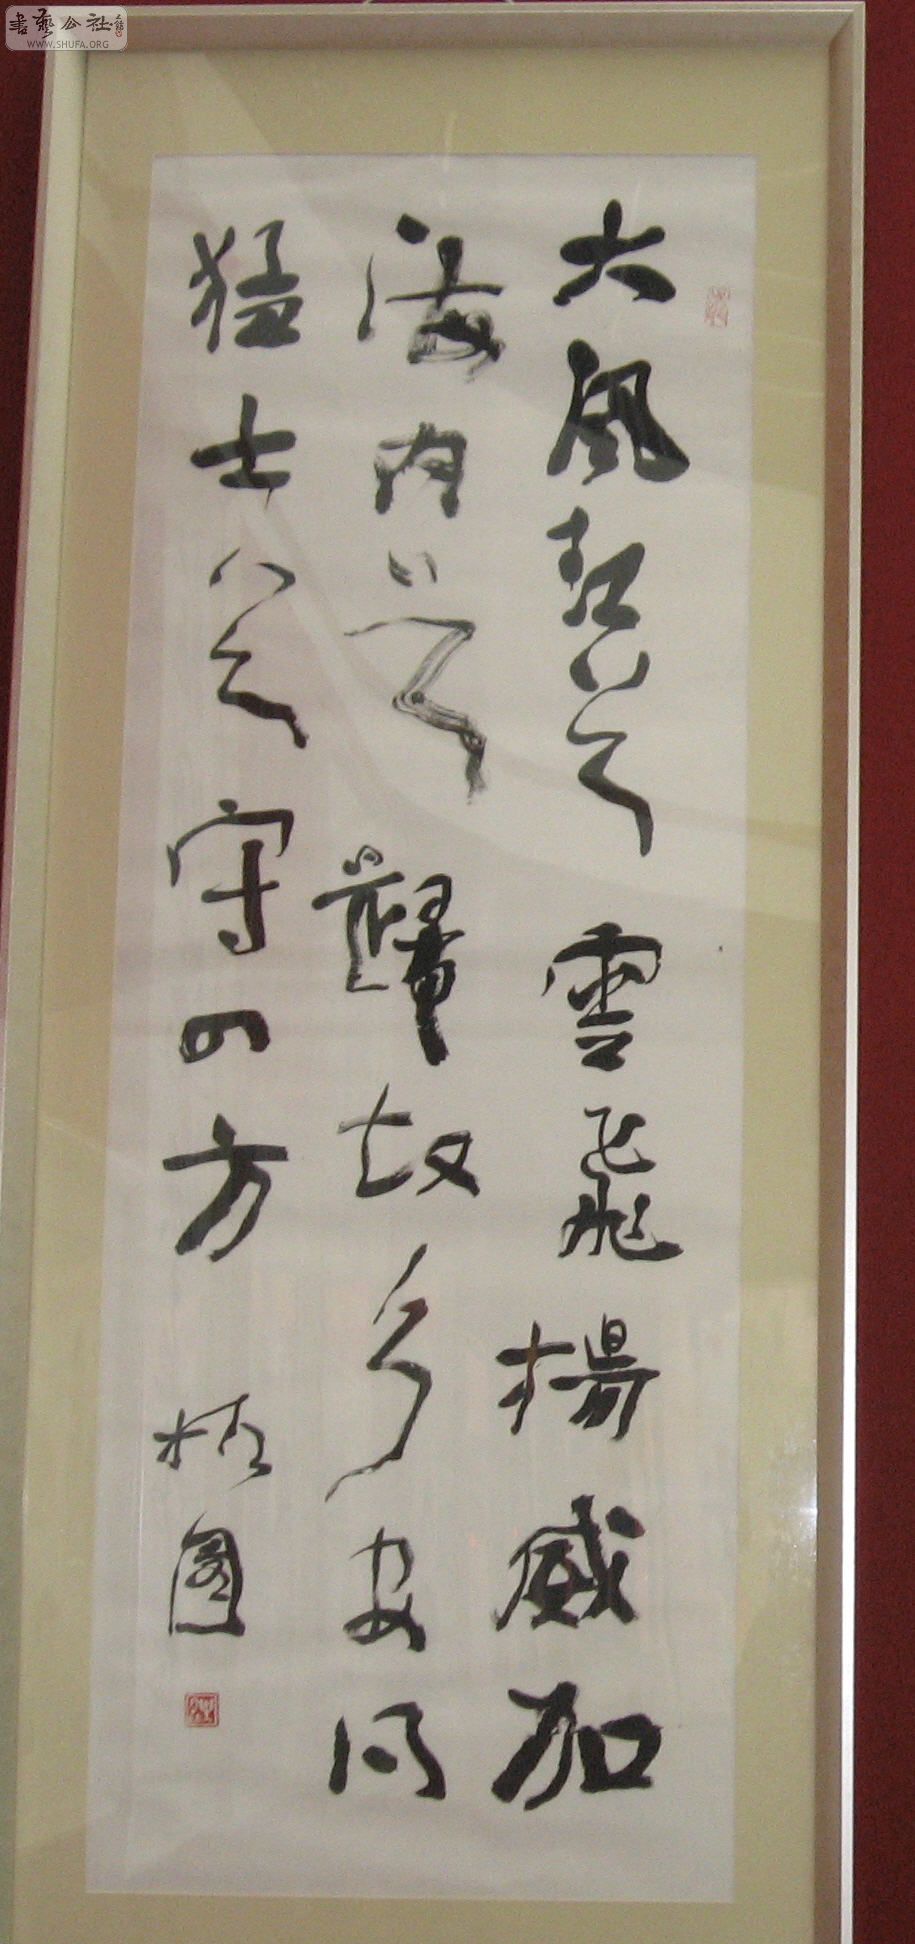 書藝公社
WWW.SHUFA.ORG
大風起兮雲飛揚威加
海内兮歸故鄉安得
猛士兮守四方